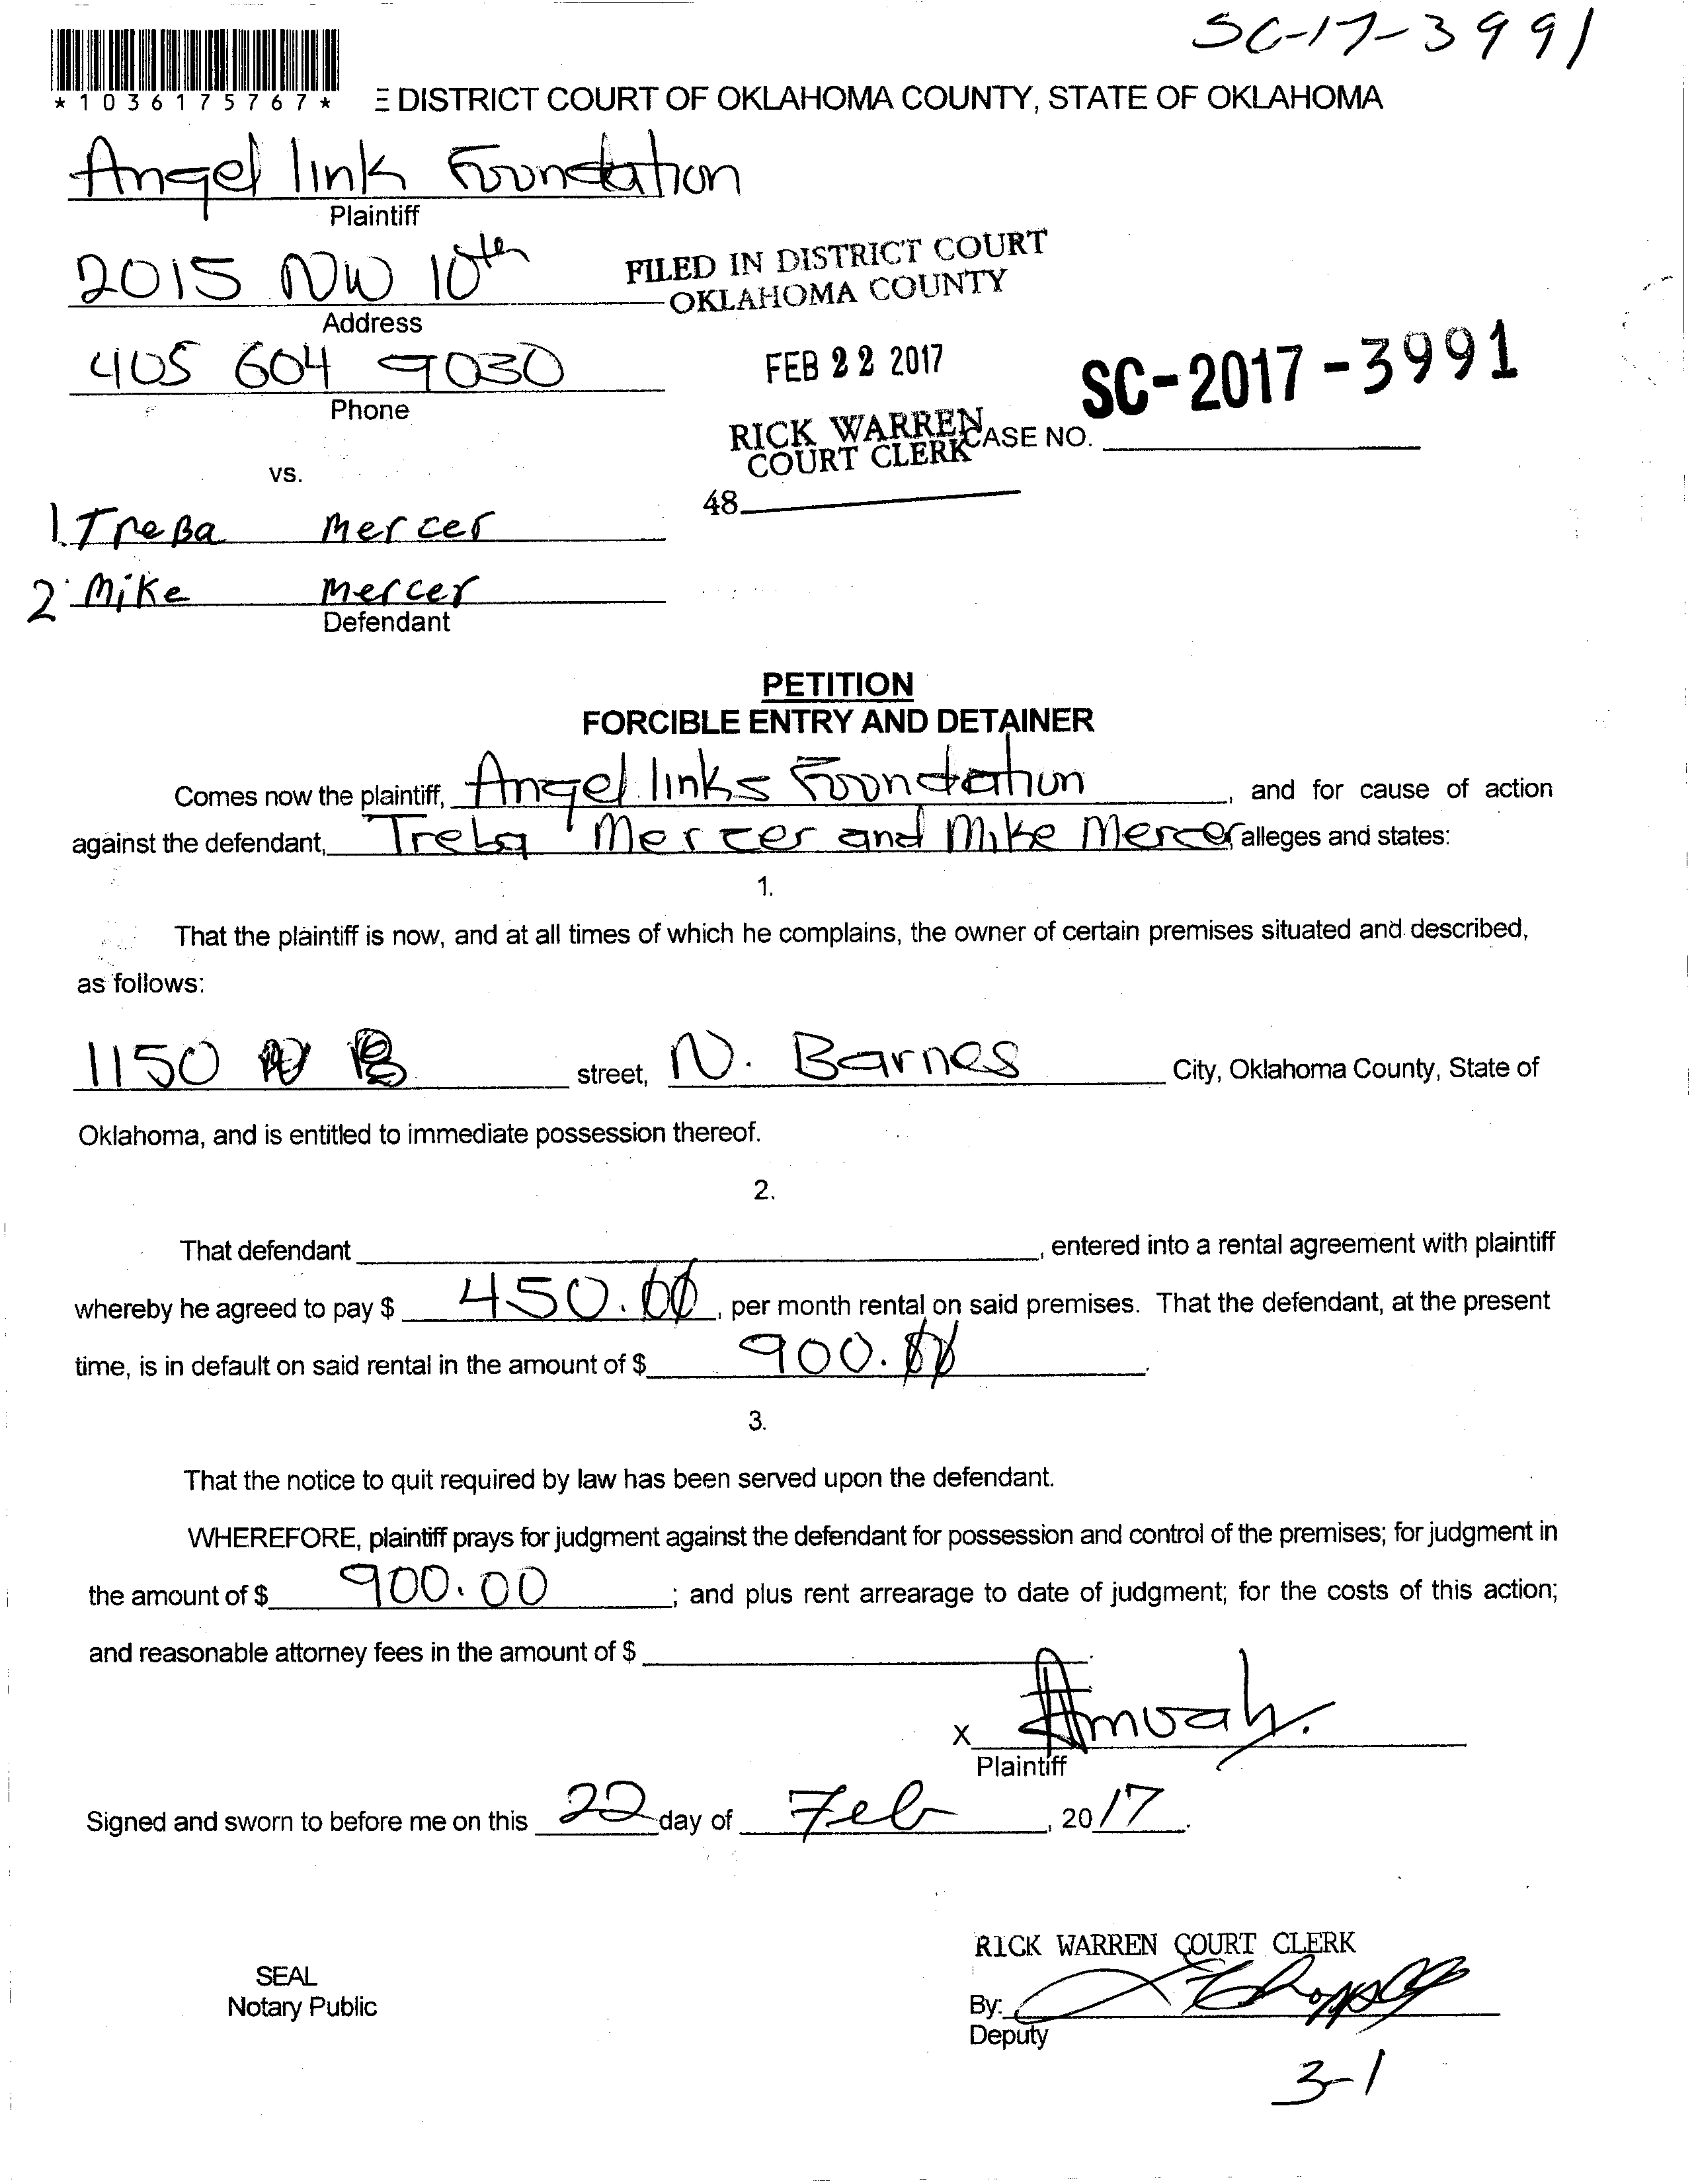 SC-17-3991
*1036175767*
E DISTRICT COURT OF OKLAHOMA COUNTY, STATE OF OKLAHOMA
Angel link Foundation
Plaintiff
2015 NW 10th
Address
FILED IN DISTRICT COURT
OKLAHOMA COUNTY
405 604 9030
Phone
FEB 22 2017
SC-2017-3991
RICK WARREN
COURT CLERK
CASE NO.
48
vs.
1. Treba Mercer
2. Mike Mercer
Defendant
PETITION
FORCIBLE ENTRY AND DETAINER
Comes now the plaintiff, Angel links Foundation, and for cause of action
against the defendant, Treba Mercer and Mike Mercer alleges and states:
1.
That the plaintiff is now, and at all times of which he complains, the owner of certain premises situated and described,
as follows:
1150 street, N. Barnes City, Oklahoma County, State of
Oklahoma, and is entitled to immediate possession thereof.
2.
That defendant , entered into a rental agreement with plaintiff
whereby he agreed to pay $ 450.00, per month rental on said premises. That the defendant, at the present
time, is in default on said rental in the amount of $ 900.00.
3.
That the notice to quit required by law has been served upon the defendant.
WHEREFORE, plaintiff prays for judgment against the defendant for possession and control of the premises; for judgment in
the amount of $ 900.00; and plus rent arrearage to date of judgment; for the costs of this action;
and reasonable attorney fees in the amount of $ .
X Amoah.
Plaintiff
Signed and sworn to before me on this 22 day of Feb, 2017.
RICK WARREN COURT CLERK
SEAL
Notary Public
By:
Deputy
3-1